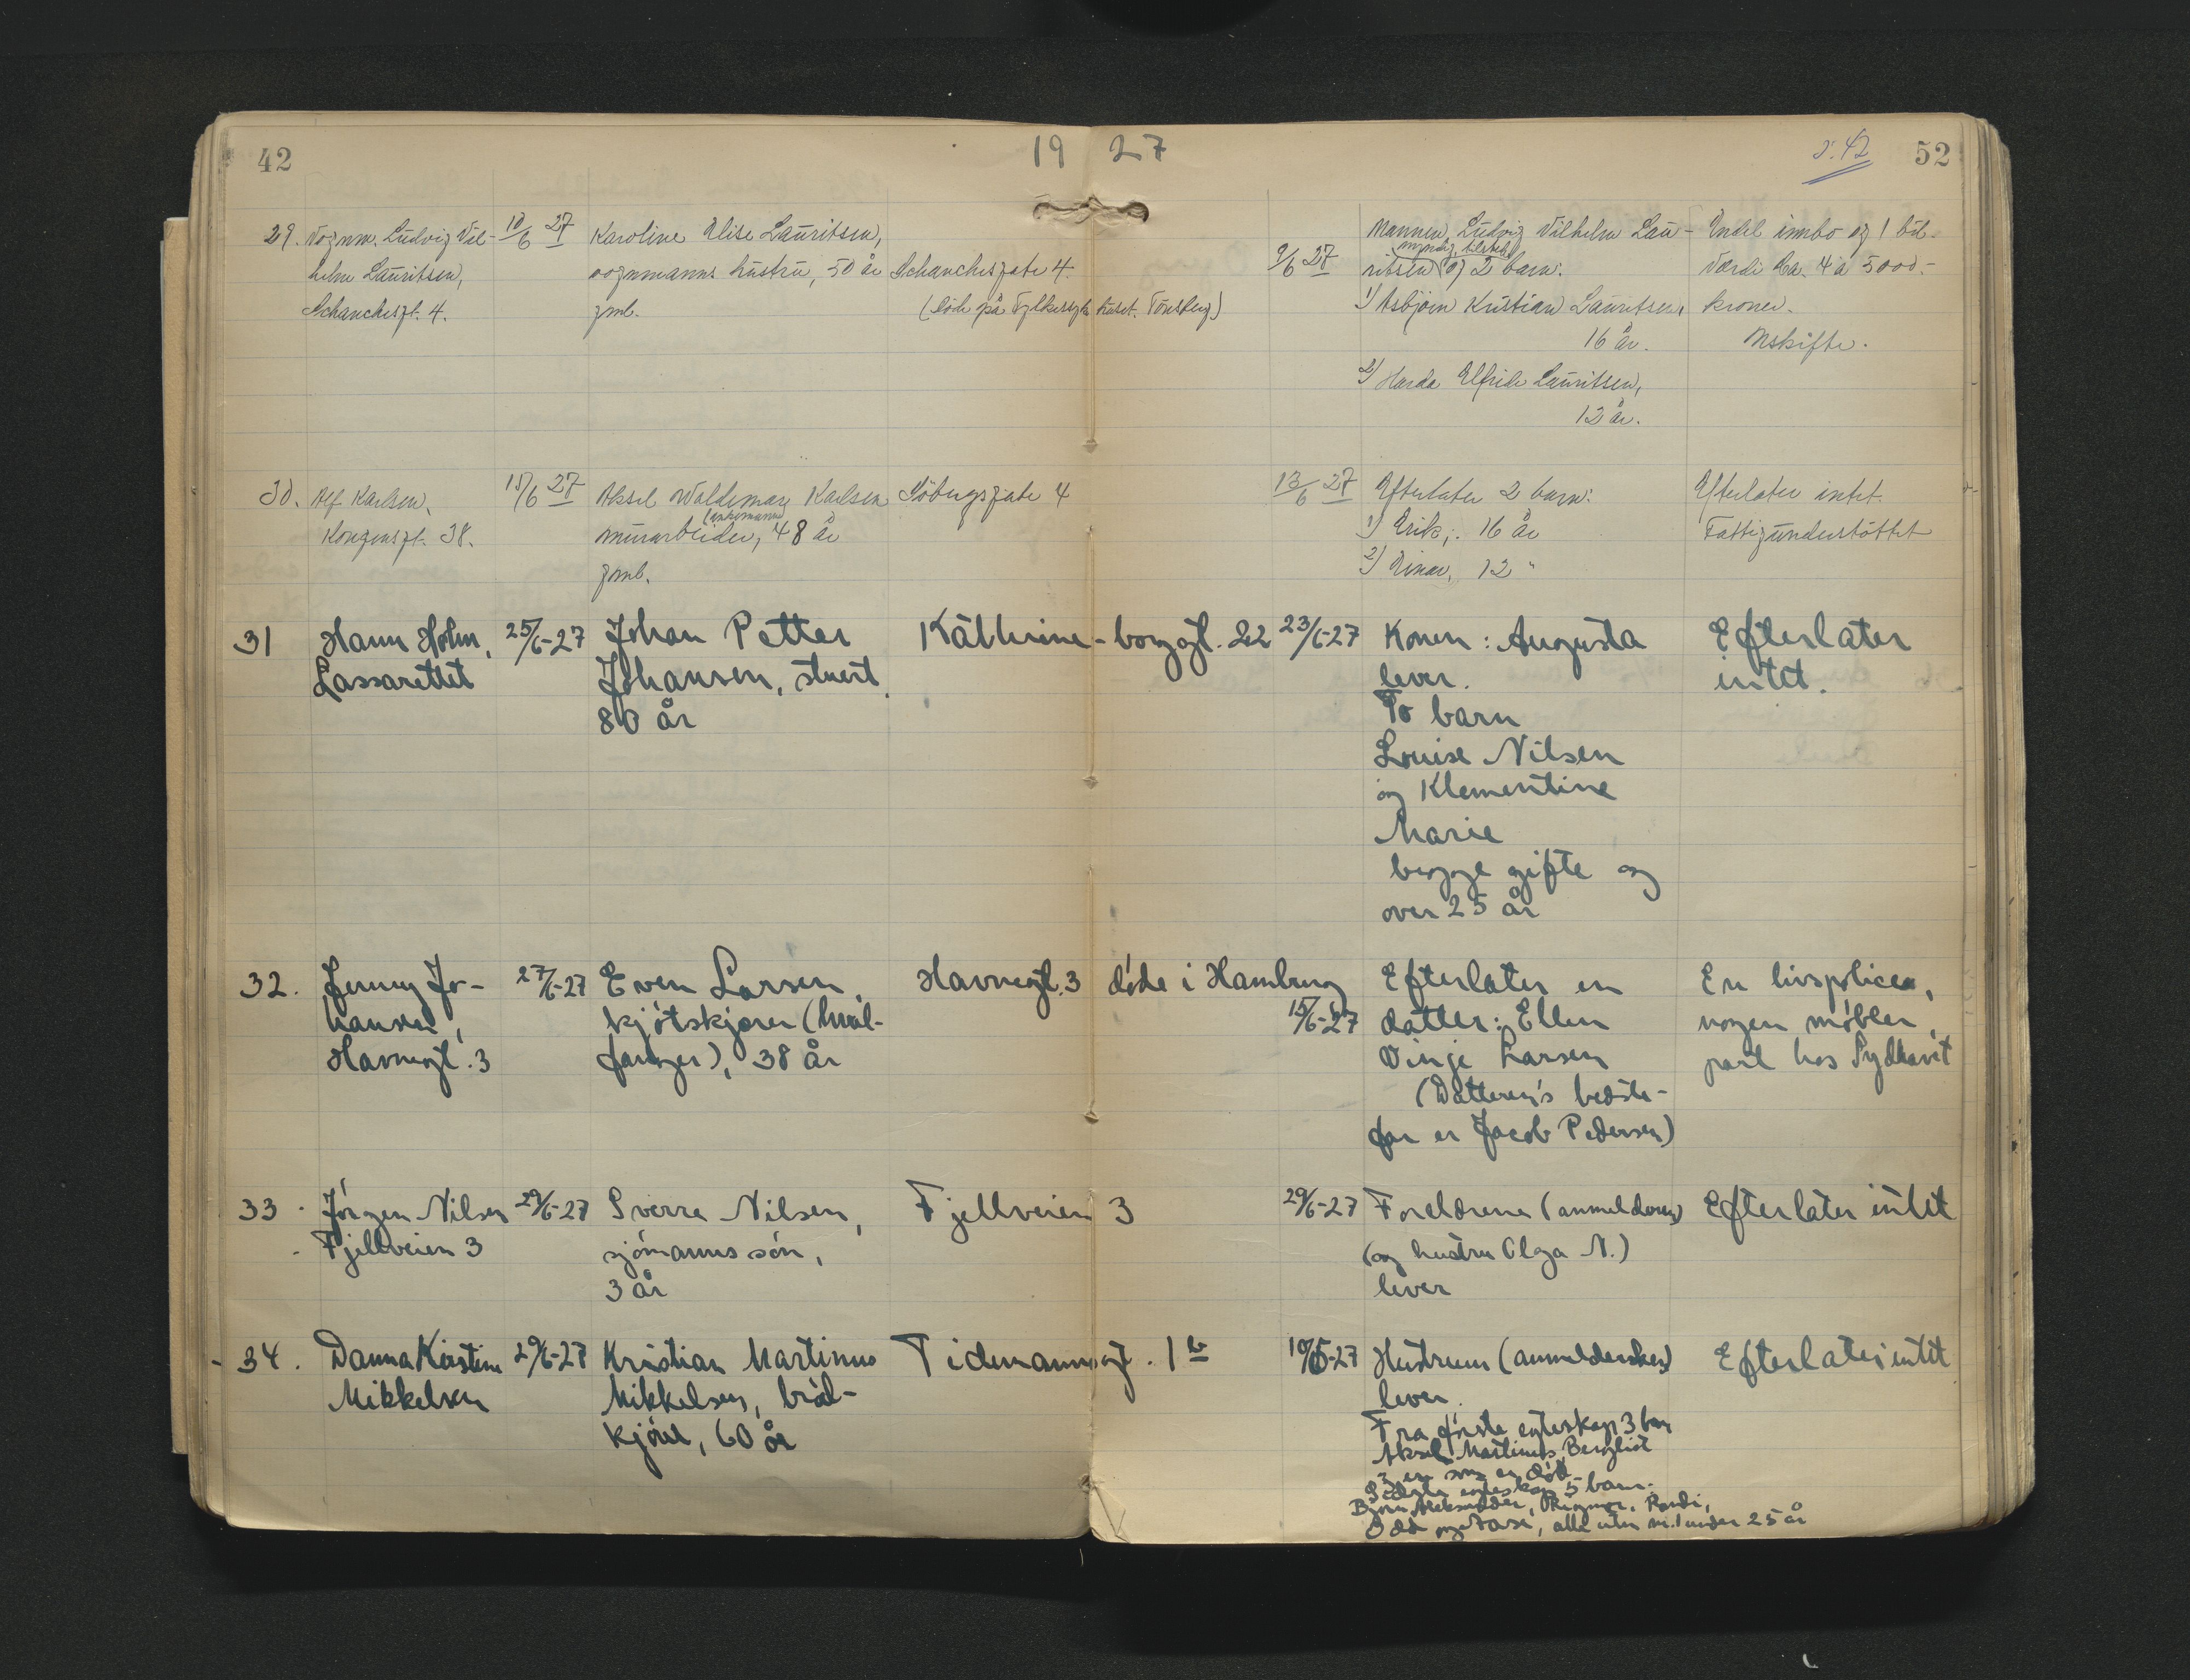 42
19 27
s. 42
52
29. Vognm. Ludvig Vil-
helm Lauritsen,
Schanchesgt. 4.
10/6 27
Karoline Elise Lauritsen,
vognmanns hustru, 50 år
gml.
Schanchesgate 4.
(döde på Fylkessyke huset. Tönsberg)
9/6 27
Mannen, Ludvig Vilhelm Lau-
ritsen og 2 barn:
1) Asbjörn Kristian Lauritsen,
16 år.
2) Harda Elfride Lauritsen,
12 år.
Endel innbo og 1 bil.
Værdi ca. 4 a 5000.-
kroner.
Uskifte.
30. Alf Karlsen,
Kongensgt. 38.
15/6 27
Aksel Waldemar Karlsen
(enkemann)
murarbeider, 48 år
gml.
Söbergsgate 4
13/6 27
Efterlater 2 barn:
1) Erik, 16 år
2) Einar, 12 "
Efterlater intet.
Fattigunderstöttet
31
Hann Holm,
Lassarettet
25/6-27
Johan Petter
Johansen, stuert,
80 år
Kathrine-borggt. 22
23/6-27
Konen: Augusta
lever.
To barn
Louise Nilsen
og Klementine
Marie
begge gifte og
over 25 år
Efterlater
intet.
32.
Jenny Jo-
hansen,
Havnegt. 3
27/6-27
Even Larsen
kjötskjærer (hval-
fanger), 38 år
Havnegt. 3
döde i Hamburg
15/6-27
Efterlater en
datter: Ellen
Vinje Larsen
(Datteren's bedste-
far er Jacob Pedersen)
En livspolice,
nogen möbler,
part hos Sydhavet
33.
Jörgen Nilsen
Fjellveien 3
29/6-27
Sverre Nilsen,
sjömanns sön,
3 år
Fjellveien 3
29/6-27
Foreldrene (anmelderen)
(og hustru Olga N.)
lever
Efterlater intet
34.
Danna Kirstine
Mikkelsen
29/6-27
Kristian Martinus
Mikkelsen, bröd-
kjörer, 60 år
Tidemannsgt. 1 b
10/5-27
Hustruen (anmeldersken)
lever.
Fra første egteskap 3 barn
Aksel, Martinus, Bergliot
som er död
Sidste egteskap 5 barn:
Björn Aleksander, Ragnar, Randi,
Odd og Aase, alle uten nr. 1 under 25 år
Efterlater intet